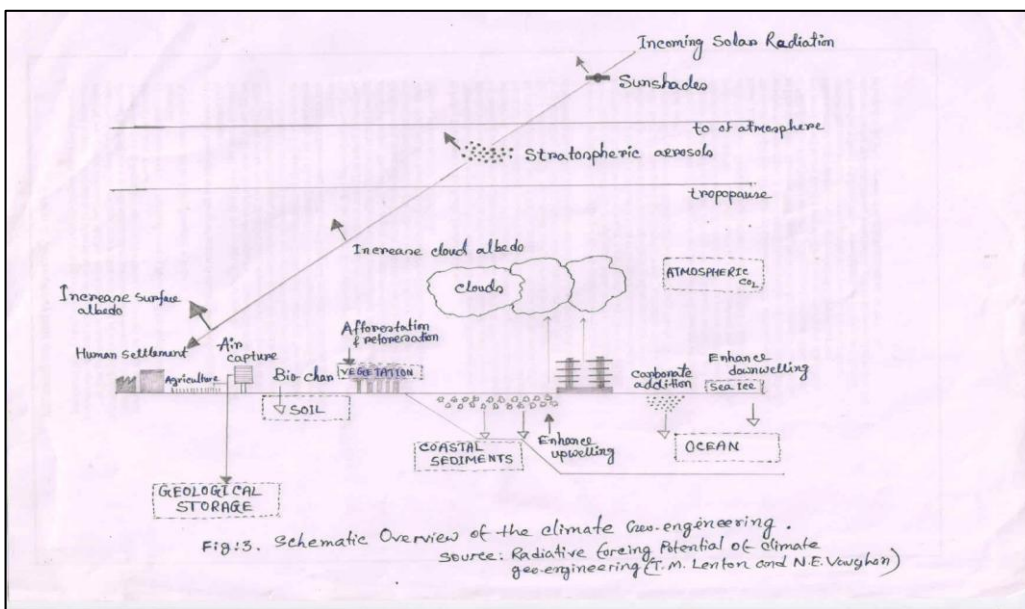 Incoming Solar Radiation
Sunshades
to of atmosphere
Stratospheric aerosols
tropopause
Increase cloud albedo
clouds
ATMOSPHERIC
CO2
Increase surface
albedo
Human Settlement
Agriculture
Air
capture
Bio-char
Afforestation
& reforestation
VEGETATION
carbonate
addition
Enhance
downwelling
Sea Ice
SOIL
COASTAL
SEDIMENTS
Enhance
upwelling
OCEAN
GEOLOGICAL
STORAGE
Fig:3. Schematic Overview of the climate Geo-engineering.
Source: Radiative forcing Potential of climate
geo-engineering (T.M. Lenton and N.E. Vaughan)